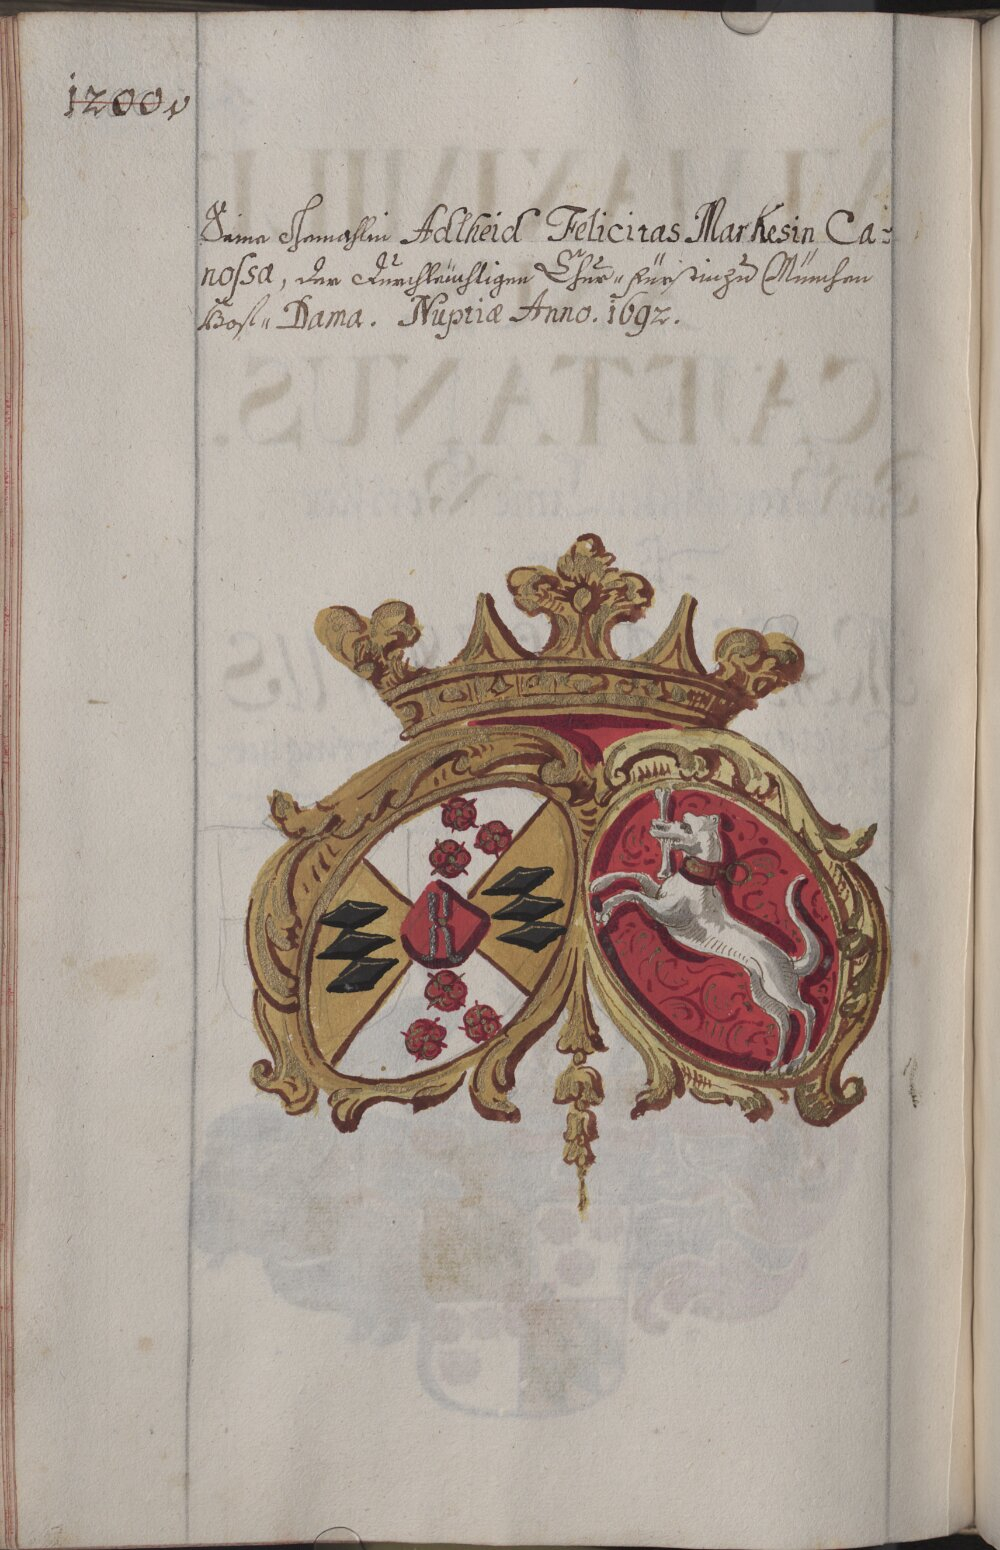 1200v
Seine Gemahlin Adlheid Felicitas Markesin Ca=
nossa, der durchleüchtigen Chur= fürstin zu München
Hof= Dama. Nuptiæ Anno. 1692.
K